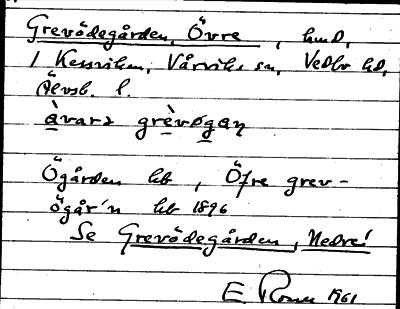 Grevödegården, Övre, hmd,
1 Kesviken, Vårviks sn, Vedbo hd,
Älvsb. l.
àvarə grèvøgaɳ
Ögården hb, Öfre grev-
ögår'n hb 1896
Se Grevödegården, Nedre!
E. Rosen 1961